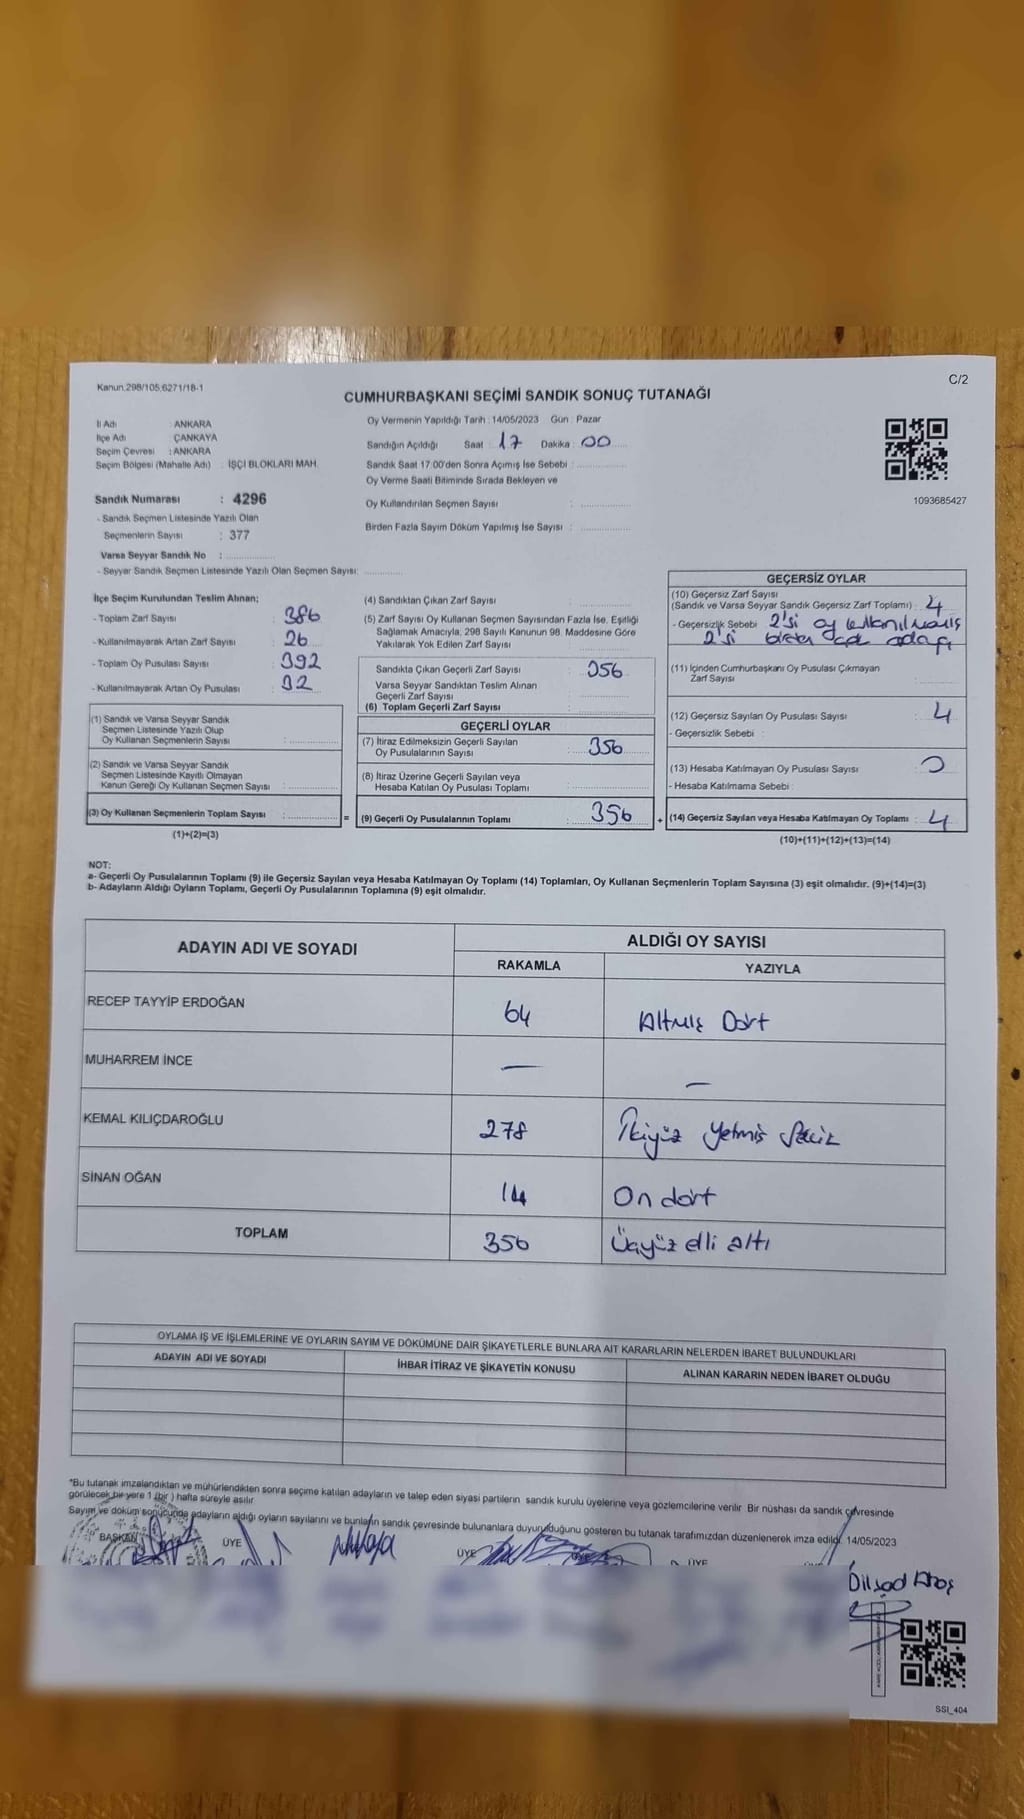 Kanun.298/105,6271/18-1
C/2
CUMHURBAŞKANI SEÇİMİ SANDIK SONUÇ TUTANAĞI
İl Adı : ANKARA
İlçe Adı : ÇANKAYA
Seçim Çevresi : ANKARA
Seçim Bölgesi (Mahalle Adı) : İŞÇİ BLOKLARI MAH.
Oy Vermenin Yapıldığı Tarih : 14/05/2023 Gün : Pazar
Sandığın Açıldığı Saat : 17 Dakika : 00
Sandık Saat 17:00'den Sonra Açımış İse Sebebi :
Oy Verme Saati Bitiminde Sırada Bekleyen ve
Oy Kullandırılan Seçmen Sayısı :
Birden Fazla Sayım Döküm Yapılmış İse Sayısı :
1093685427
Sandık Numarası : 4296
- Sandık Seçmen Listesinde Yazılı Olan
Seçmenlerin Sayısı : 377
Varsa Seyyar Sandık No :
- Seyyar Sandık Seçmen Listesinde Yazılı Olan Seçmen Sayısı:
İlçe Seçim Kurulundan Teslim Alınan;
- Toplam Zarf Sayısı : 386
- Kullanılmayarak Artan Zarf Sayısı : 26
- Toplam Oy Pusulası Sayısı : 392
- Kullanılmayarak Artan Oy Pusulası : 32
(1) Sandık ve Varsa Seyyar Sandık
Seçmen Listesinde Yazılı Olup
Oy Kullanan Seçmenlerin Sayısı :
(2) Sandık ve Varsa Seyyar Sandık
Seçmen Listesinde Kayıtlı Olmayan
Kanun Gereği Oy Kullanan Seçmen Sayısı :
(3) Oy Kullanan Seçmenlerin Toplam Sayısı : =
(1)+(2)=(3)
(4) Sandıktan Çıkan Zarf Sayısı :
(5) Zarf Sayısı Oy Kullanan Seçmen Sayısından Fazla İse, Eşitliği
Sağlamak Amacıyla; 298 Sayılı Kanunun 98. Maddesine Göre
Yakılarak Yok Edilen Zarf Sayısı :
Sandıkta Çıkan Geçerli Zarf Sayısı : 356
Varsa Seyyar Sandıktan Teslim Alınan
Geçerli Zarf Sayısı :
(6) Toplam Geçerli Zarf Sayısı :
GEÇERLİ OYLAR
(7) İtiraz Edilmeksizin Geçerli Sayılan
Oy Pusulalarının Sayısı : 356
(8) İtiraz Üzerine Geçerli Sayılan veya
Hesaba Katılan Oy Pusulası Toplamı :
(9) Geçerli Oy Pusulalarının Toplamı : 356 +
GEÇERSİZ OYLAR
(10) Geçersiz Zarf Sayısı
(Sandık ve Varsa Seyyar Sandık Geçersiz Zarf Toplamı) : 4
- Geçersizlik Sebebi : 2'si oy kullanılmamış
2'si birden çok adayı
(11) İçinden Cumhurbaşkanı Oy Pusulası Çıkmayan
Zarf Sayısı :
(12) Geçersiz Sayılan Oy Pusulası Sayısı : 4
- Geçersizlik Sebebi :
(13) Hesaba Katılmayan Oy Pusulası Sayısı : 0
- Hesaba Katılmama Sebebi :
(14) Geçersiz Sayılan veya Hesaba Katılmayan Oy Toplamı : 4
(10)+(11)+(12)+(13)=(14)
NOT:
a- Geçerli Oy Pusulalarının Toplamı (9) ile Geçersiz Sayılan veya Hesaba Katılmayan Oy Toplamı (14) Toplamları, Oy Kullanan Seçmenlerin Toplam Sayısına (3) eşit olmalıdır. (9)+(14)=(3)
b- Adayların Aldığı Oyların Toplamı, Geçerli Oy Pusulalarının Toplamına (9) eşit olmalıdır.
ADAYIN ADI VE SOYADI ALDIĞI OY SAYISI
RAKAMLA YAZIYLA
RECEP TAYYİP ERDOĞAN 64 Altmış Dört
MUHARREM İNCE — —
KEMAL KILIÇDAROĞLU 278 İkiyüz Yetmiş Sekiz
SİNAN OĞAN 14 On dört
TOPLAM 356 Üçyüz elli altı
OYLAMA İŞ VE İŞLEMLERİNE VE OYLARIN SAYIM VE DÖKÜMÜNE DAİR ŞİKAYETLERLE BUNLARA AİT KARARLARIN NELERDEN İBARET BULUNDUKLARI
ADAYIN ADI VE SOYADI İHBAR İTİRAZ VE ŞİKAYETİN KONUSU ALINAN KARARIN NEDEN İBARET OLDUĞU
*Bu tutanak imzalandıktan ve mühürlendikten sonra seçime katılan adayların ve talep eden siyasi partilerin sandık kurulu üyelerine veya gözlemcilerine verilir. Bir nüshası da sandık çevresinde
görülecek bir yere 1 (bir) hafta süreyle asılır.
Sayım ve döküm sonucunda adayların aldığı oyların sayılarını ve bunların sandık çevresinde bulunanlara duyurulduğunu gösteren bu tutanak tarafımızdan düzenlenerek imza edildi. 14/05/2023
BAŞKAN ÜYE ÜYE ÜYE
Dilşad
SSİ_404